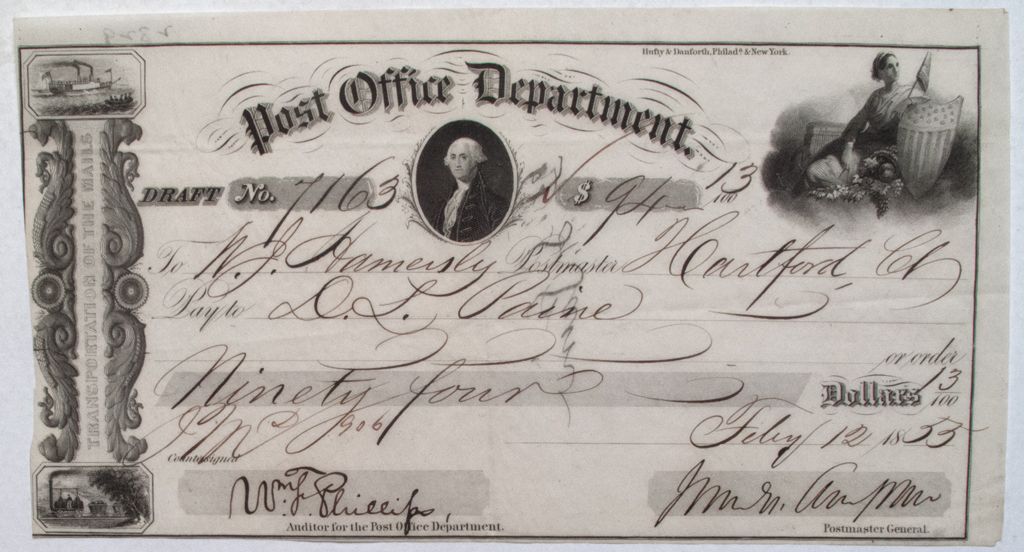 Hufty & Danforth, Philadª & New York.
Post Office Department.
TRANSPORTATION OF THE MAILS
DRAFT No. 7163 $ 94 13/100
To W. J. Hamersly Postmaster Hartford, Ct
Pay to D. L. Paine
or order
Ninety four Dollars 13/100
906
Feby 12 1855
Countersigned
Wm. F. Phillips,
Auditor for the Post Office Department.
Postmaster General.